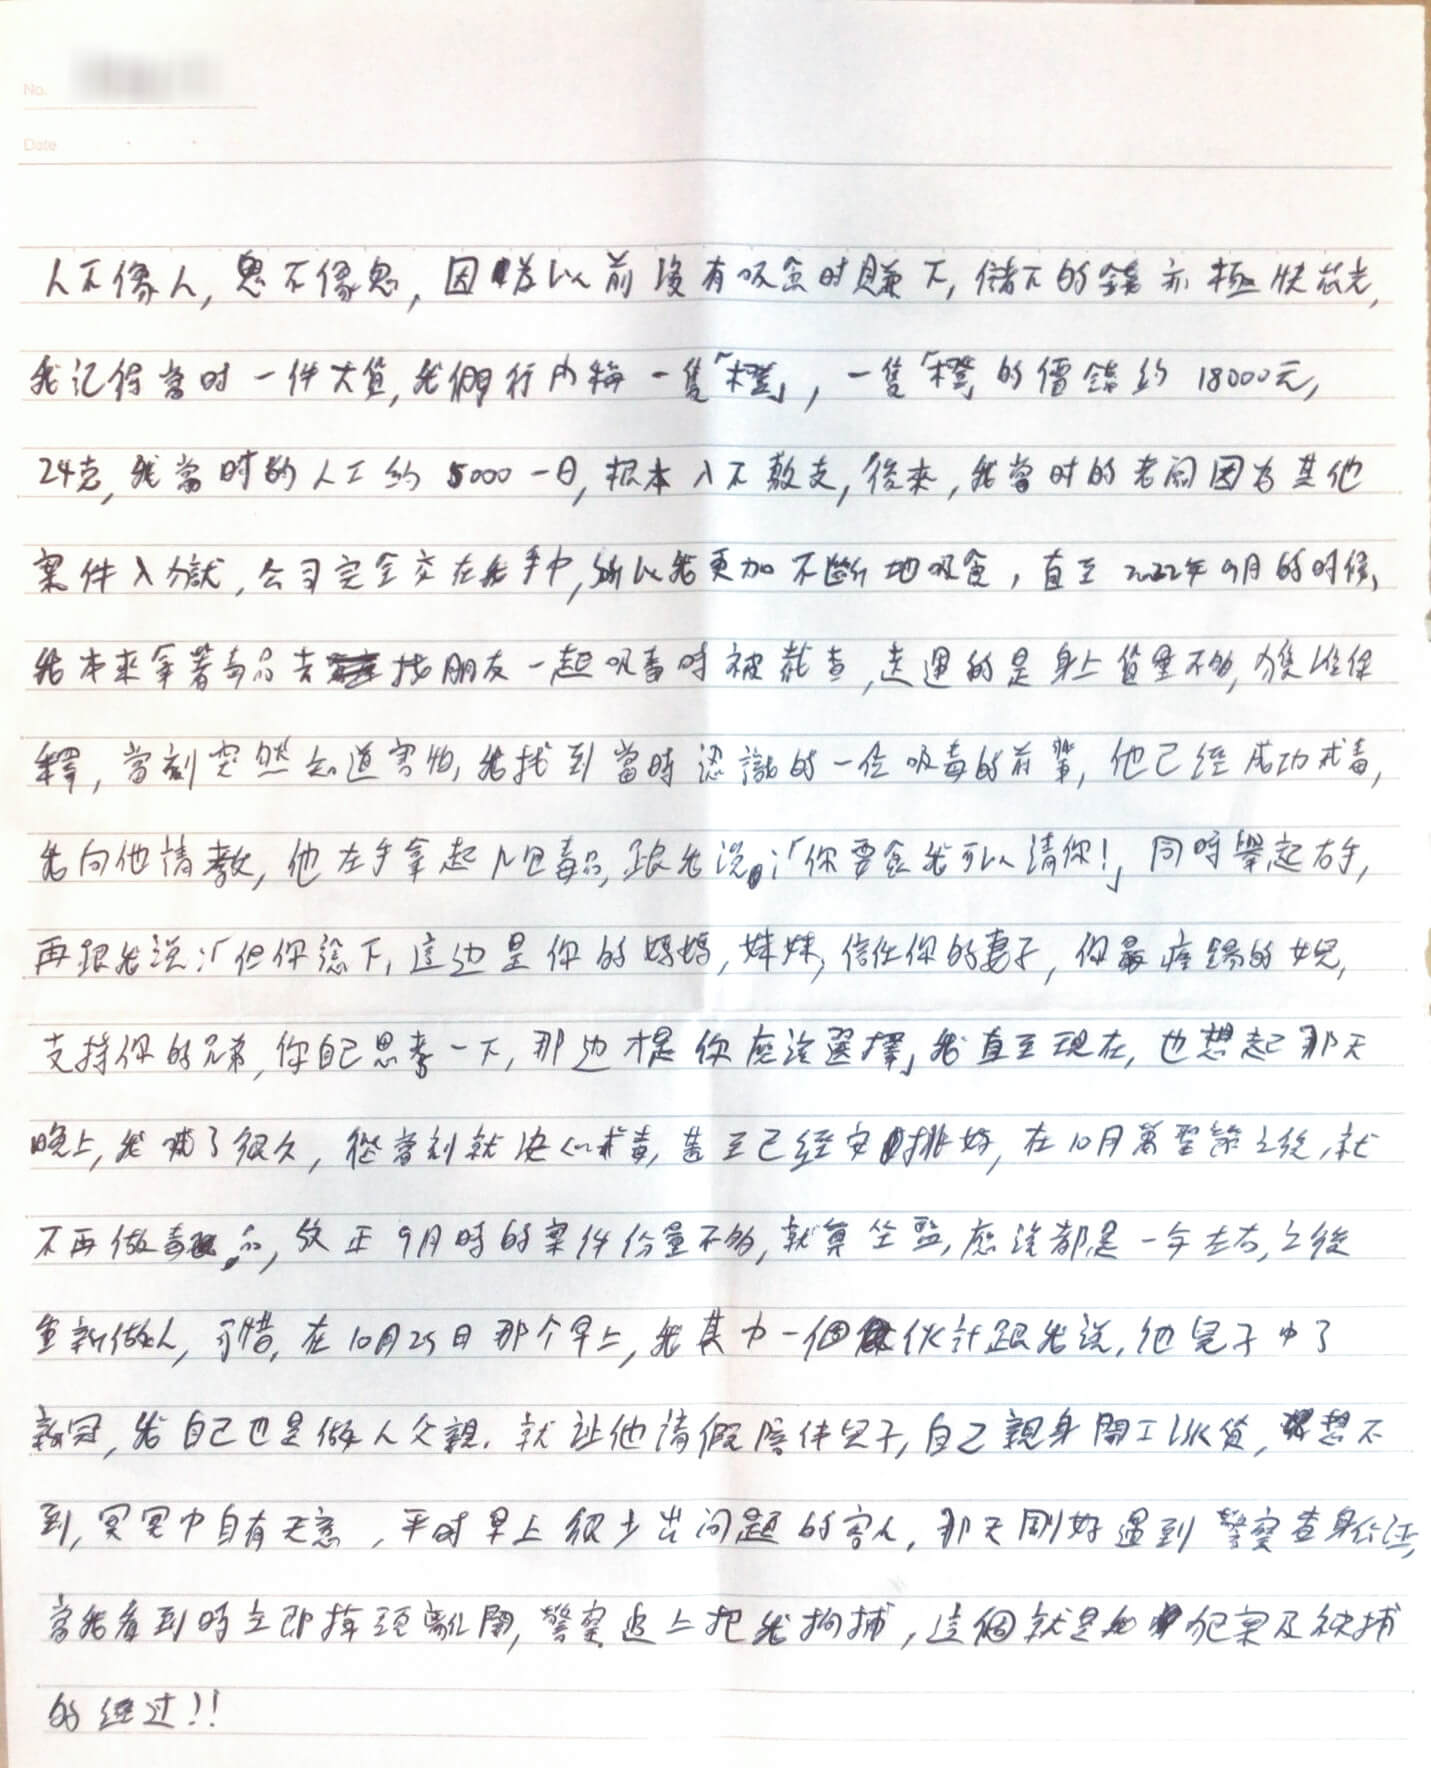 No.
Date
人不像人, 鬼不像鬼, 因為以前沒有吸食时賺下, 儲下的錢亦極快花光,
我记得當时一件大貨, 我們行內稱一隻「橙」, 一隻「橙」的價錢約18000元,
24克, 我當时的人工約5000一日, 根本入不敷支, 後來, 我當时的老闆因为其他
案件入獄, 公司完全交在我手中, 所以我更加不斷地吸食, 直至2022年9月的时候,
我本來拿著毒品去找朋友一起吸毒时被截查, 走運的是身上貨量不夠, 獲准保
釋, 當刻突然知道害怕, 我找到當時認識的一位吸毒的前輩, 他已經成功戒毒,
我向他請教, 他左手拿起几包毒品, 跟我说:「你要食我可以請你!」同時舉起右手,
再跟我说:「但你諗下, 這边是你的媽媽, 妹妹, 信任你的妻子, 你最疼錫的女兒,
支持你的兄弟, 你自己思考一下, 那边才是你應該選擇」我直至現在, 也想起那天
晚上, 我喊了很久, 從當刻就決心戒毒, 甚至已經安排好, 在10月萬聖節之後, 就
不再做毒品, 反正9月時的案件份量不夠, 就算坐監, 應該都是一年左右, 之後
重新做人, 可惜, 在10月25日那个早上, 我其中一個伙計跟我说, 他兒子中了
新冠, 我自己也是做人父親, 就让他請假陪伴兒子, 自己親身開工派貨, 想不
到, 冥冥中自有天意, 平时早上很少出问题的客人, 那天剛好遇到警察查身份证,
當我看到時立即掉頭離開, 警察追上把我拘捕, 這個就是我犯案及被捕
的经过!!